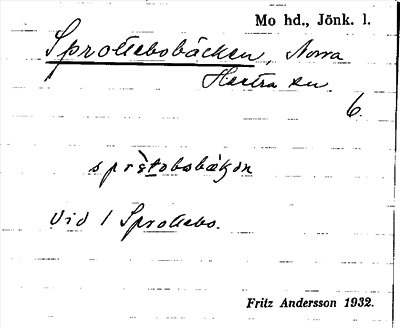 Mo hd., Jönk. l.
Sprottebobäcken, Norra
Hestra sn.
6.
sprɩ̀tobobäkən
Vid 1 Sprottebo.
Fritz Andersson 1932.